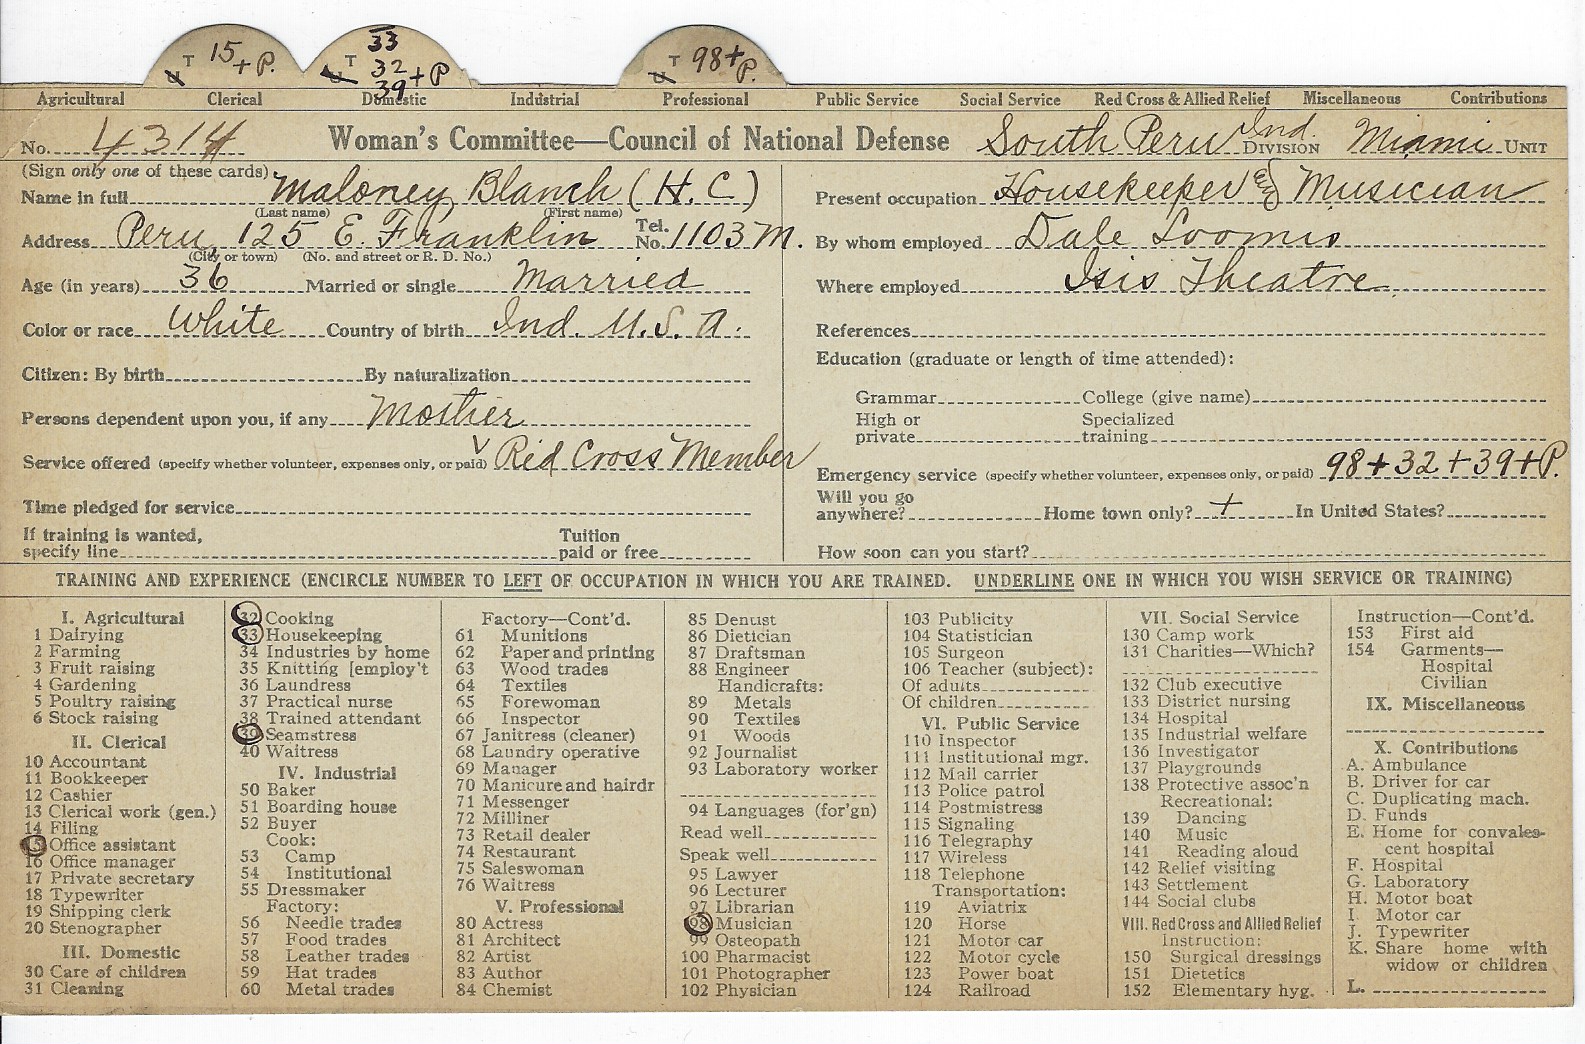 T 15 + P.
T 33 32 39 + P
T 98 + P.
Agricultural Clerical Domestic Industrial Professional Public Service Social Service Red Cross & Allied Relief Miscellaneous Contributions
No. 4314 Woman's Committee—Council of National Defense South Peru Ind. DIVISION Miami UNIT
(Sign only one of these cards)
Name in full Maloney Blanch (H. C.)
(Last name) (First name)
Address Peru, 125 E. Franklin Tel. No. 1103 M.
(City or town) (No. and street or R. D. No.)
Age (in years) 36 Married or single Married
Color or race White Country of birth Ind. U. S. A.
Citizen: By birth By naturalization
Persons dependent upon you, if any Mother
Service offered (specify whether volunteer, expenses only, or paid) V Red Cross Member
Time pledged for service
If training is wanted, specify line Tuition paid or free
Present occupation Housekeeper & Musician
By whom employed Dale Loomis
Where employed Isis Theatre
References
Education (graduate or length of time attended):
Grammar College (give name)
High or private Specialized training
Emergency service (specify whether volunteer, expenses only, or paid) 98 + 32 + 39 + P.
Will you go anywhere? Home town only? + In United States?
How soon can you start?
TRAINING AND EXPERIENCE (ENCIRCLE NUMBER TO LEFT OF OCCUPATION IN WHICH YOU ARE TRAINED. UNDERLINE ONE IN WHICH YOU WISH SERVICE OR TRAINING)
I. Agricultural
1 Dairying
2 Farming
3 Fruit raising
4 Gardening
5 Poultry raising
6 Stock raising
II. Clerical
10 Accountant
11 Bookkeeper
12 Cashier
13 Clerical work (gen.)
14 Filing
15 Office assistant
16 Office manager
17 Private secretary
18 Typewriter
19 Shipping clerk
20 Stenographer
III. Domestic
30 Care of children
31 Cleaning
32 Cooking
33 Housekeeping
34 Industries by home
35 Knitting [employ't
36 Laundress
37 Practical nurse
38 Trained attendant
39 Seamstress
40 Waitress
IV. Industrial
50 Baker
51 Boarding house
52 Buyer
Cook:
53 Camp
54 Institutional
55 Dressmaker
Factory:
56 Needle trades
57 Food trades
58 Leather trades
59 Hat trades
60 Metal trades
Factory—Cont'd.
61 Munitions
62 Paper and printing
63 Wood trades
64 Textiles
65 Forewoman
66 Inspector
67 Janitress (cleaner)
68 Laundry operative
69 Manager
70 Manicure and hairdr
71 Messenger
72 Milliner
73 Retail dealer
74 Restaurant
75 Saleswoman
76 Waitress
V. Professional
80 Actress
81 Architect
82 Artist
83 Author
84 Chemist
85 Dentist
86 Dietician
87 Draftsman
88 Engineer
Handicrafts:
89 Metals
90 Textiles
91 Woods
92 Journalist
93 Laboratory worker
94 Languages (for'gn)
Read well
Speak well
95 Lawyer
96 Lecturer
97 Librarian
98 Musician
99 Osteopath
100 Pharmacist
101 Photographer
102 Physician
103 Publicity
104 Statistician
105 Surgeon
106 Teacher (subject):
Of adults
Of children
VI. Public Service
110 Inspector
111 Institutional mgr.
112 Mail carrier
113 Police patrol
114 Postmistress
115 Signaling
116 Telegraphy
117 Wireless
118 Telephone
Transportation:
119 Aviatrix
120 Horse
121 Motor car
122 Motor cycle
123 Power boat
124 Railroad
VII. Social Service
130 Camp work
131 Charities—Which?
132 Club executive
133 District nursing
134 Hospital
135 Industrial welfare
136 Investigator
137 Playgrounds
138 Protective assoc'n
Recreational:
139 Dancing
140 Music
141 Reading aloud
142 Relief visiting
143 Settlement
144 Social clubs
VIII. Red Cross and Allied Relief
Instruction:
150 Surgical dressings
151 Dietetics
152 Elementary hyg.
Instruction—Cont'd.
153 First aid
154 Garments—
Hospital
Civilian
IX. Miscellaneous
X. Contributions
A. Ambulance
B. Driver for car
C. Duplicating mach.
D. Funds
E. Home for convales-
cent hospital
F. Hospital
G. Laboratory
H. Motor boat
I. Motor car
J. Typewriter
K. Share home with
widow or children
L.